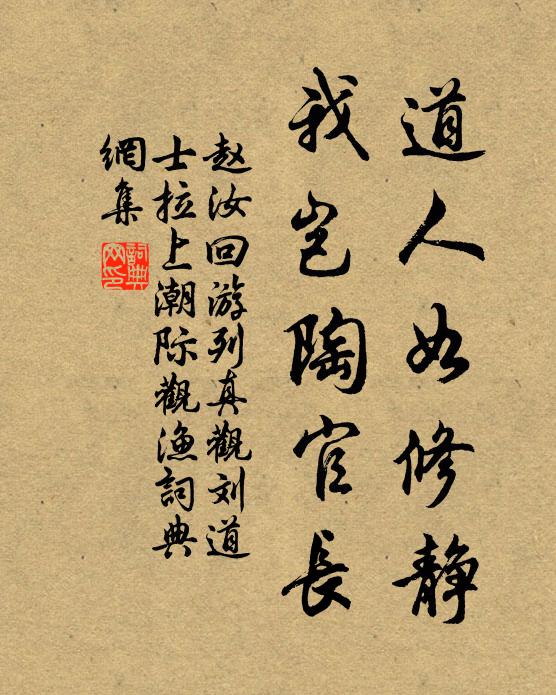 道人如修静
我岂陶官長
赵汝回游列真觀刘道
士拉上潮际觀渔詞典
網集
詞典网印